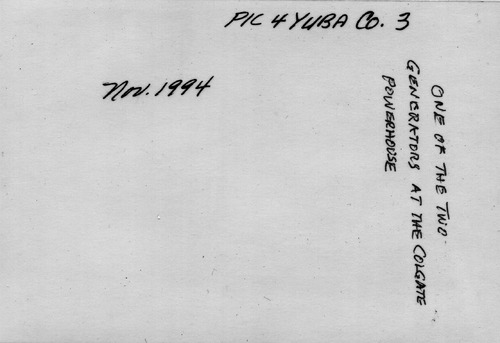 PIC 4 YUBA CO. 3
Nov. 1994
ONE OF THE TWO
GENERATORS AT THE COLGATE
POWERHOUSE